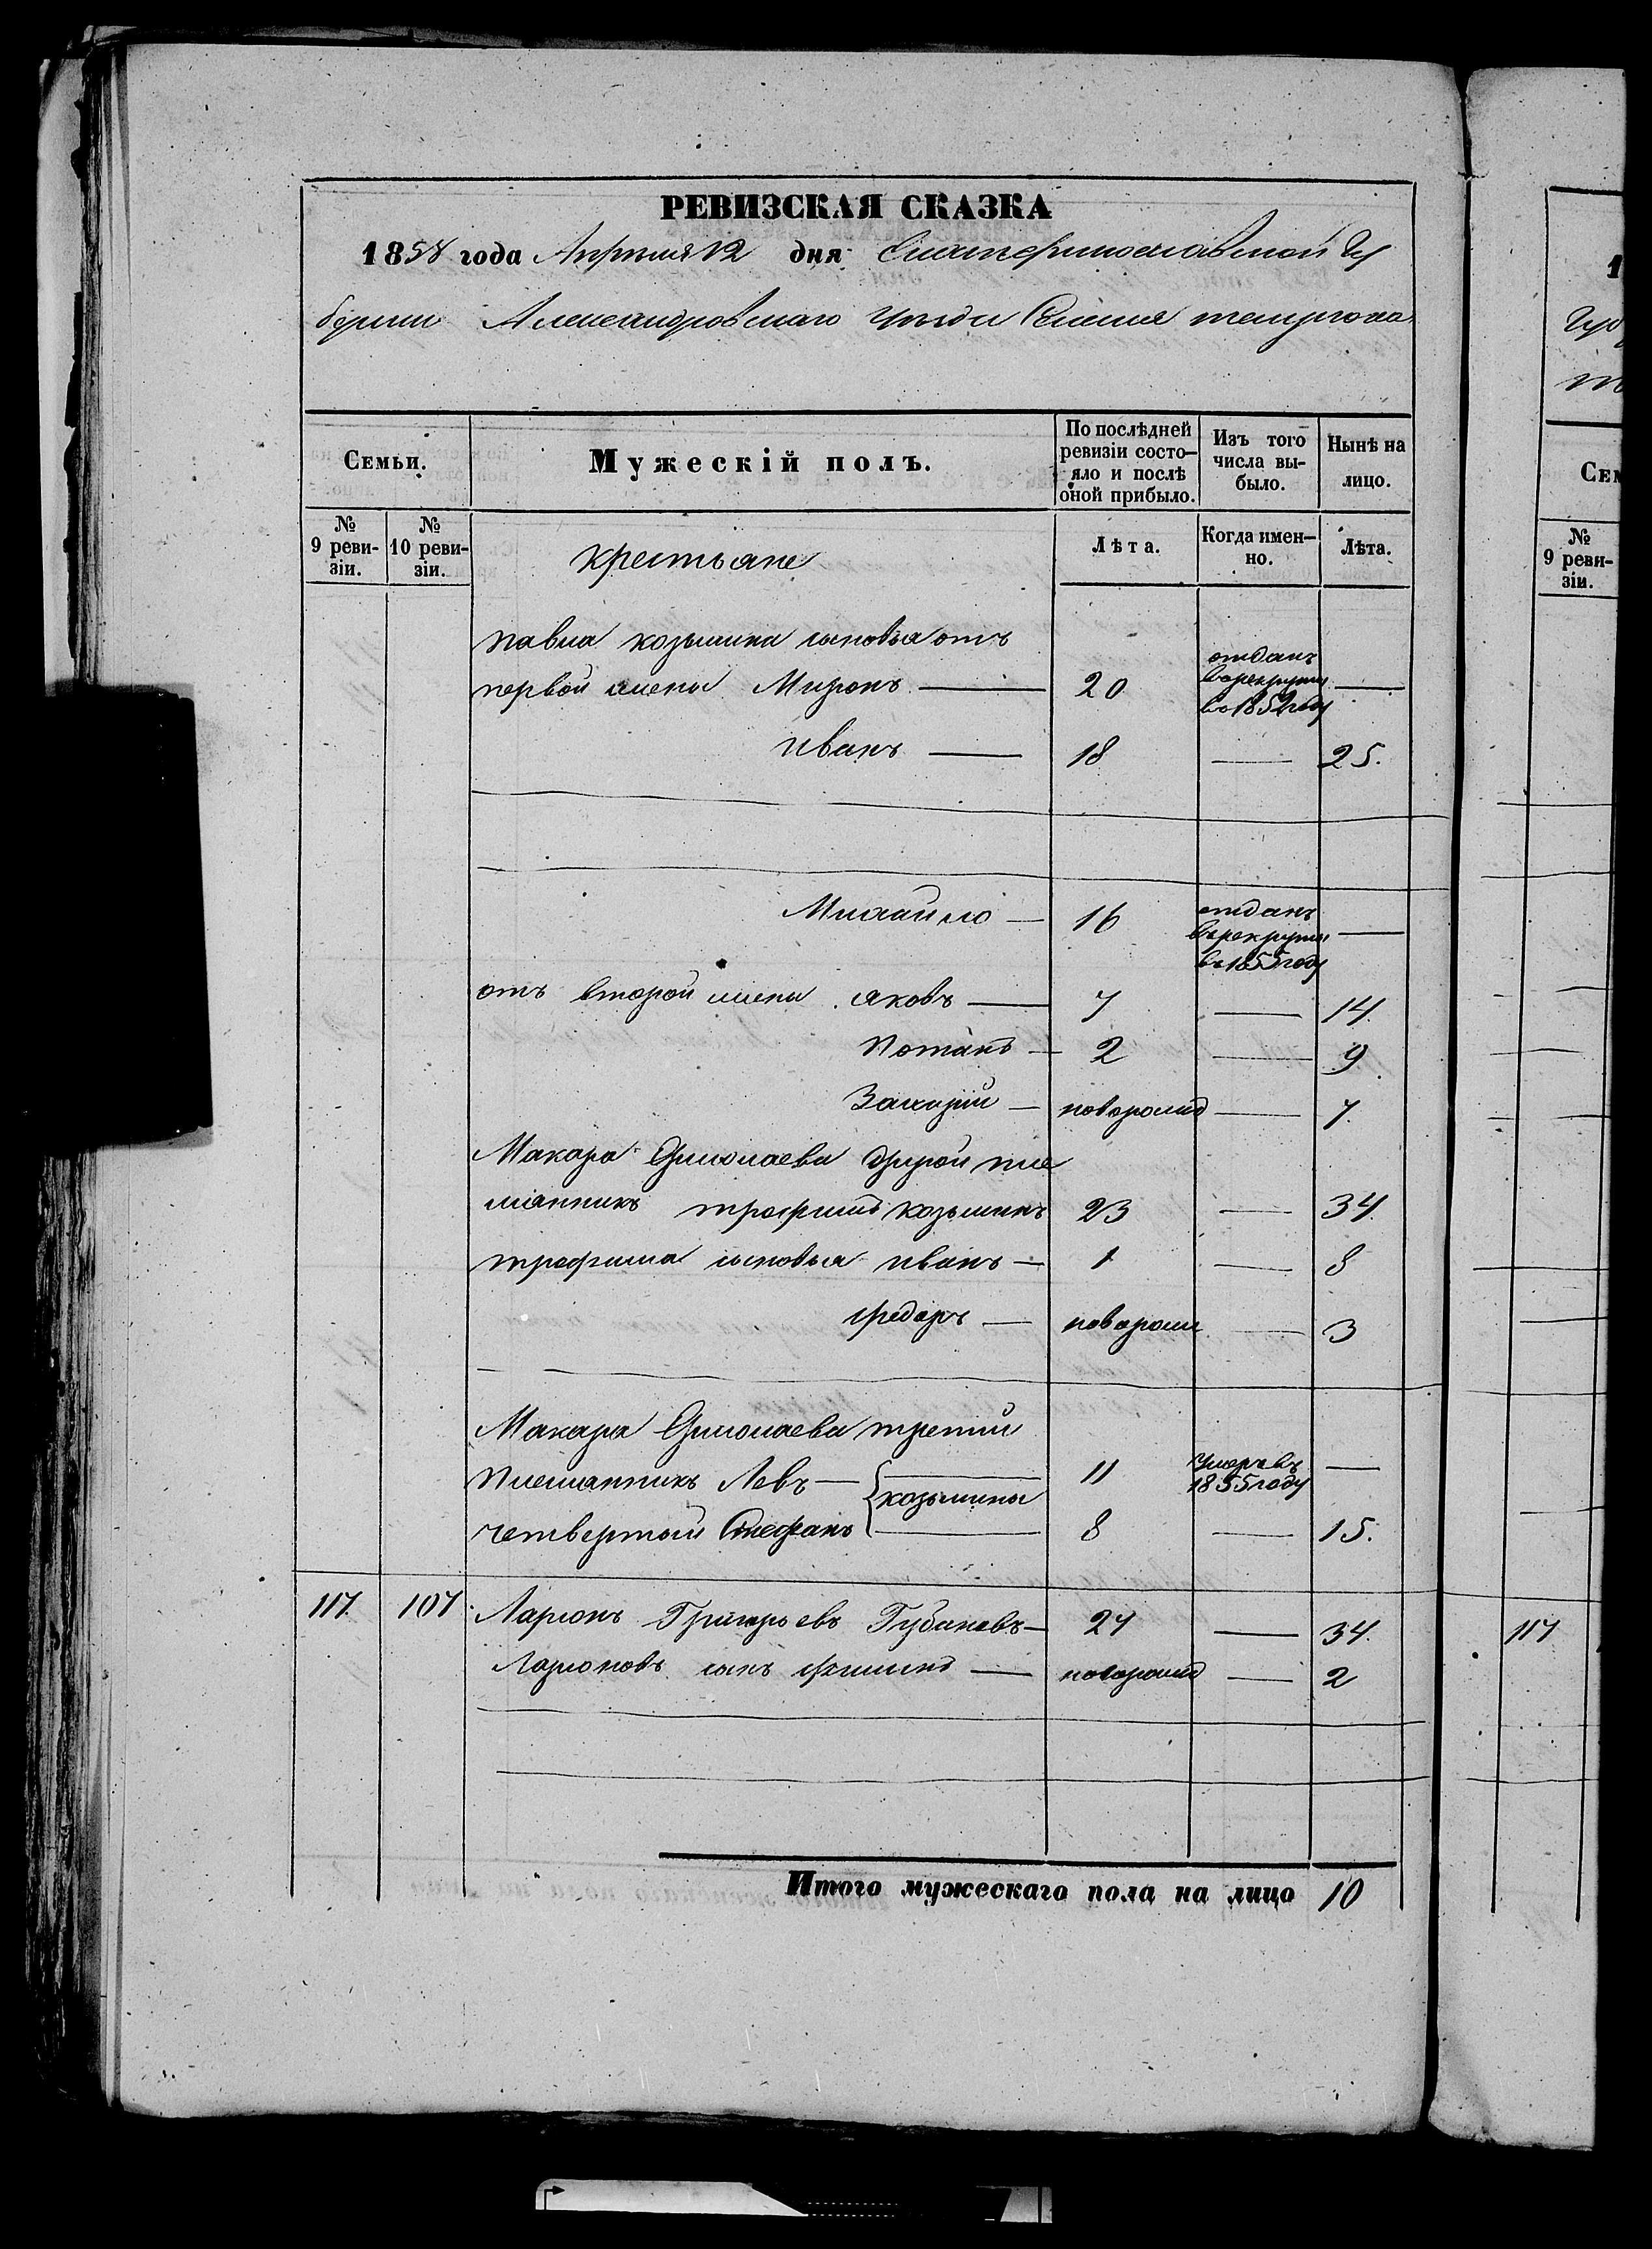 РЕВИЗСКАЯ СКАЗКА
1858 года Апреля 12 дня Екатеринославской Гу
берніи Александровскаго уезда Селенія
Семьи.
Мужескій полъ.
По послѣдней ревизіи состо-
яло и послѣ
оной прибыло.
Изъ того
числа вы-
было.
Нынѣ на
лицо.
№
9 реви-
зіи.
№
10 реви-
зіи.
крестьяне
Лѣта.
Когда имен-
но.
Лѣта.
павла козьмина сыновья отъ
первой жены Миронъ 20 отданъ
врекруты
въ 1852 году
иванъ 18 25.
Михайло 16 отданъ
врекруты
въ 1855 году
отъ второй жены яковъ 7 14.
Потапъ 2 9
Захарій новорожд 7.
Макара Ермолаева другой пле
мянникъ трофимъ козьминъ 23 34.
трофима сыновья иванъ 1 8
федоръ новорож 3
Макара Ермолаева третий
племянникъ Левъ 11 умеръ въ
1855 году
козьмины
четвертый Стефанъ 8 15.
117. 107. Ларионъ Григорьевъ Губановъ 27 34.
Ларионовъ сынъ новорожд 2
Итого мужескаго пола на лицо 10
1
Гу
Сем
№
9 реви-
зіи.
117